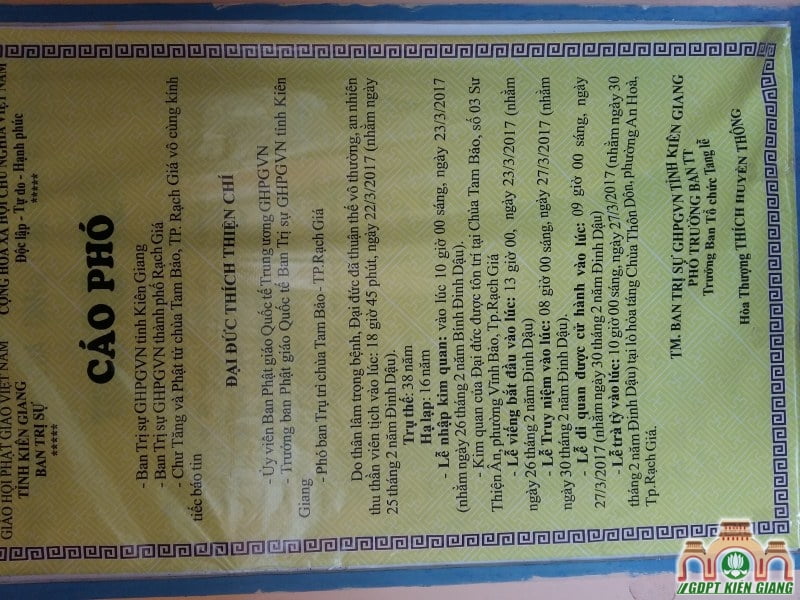 GIÁO HỘI PHẬT GIÁO VIỆT NAM
TỈNH KIÊN GIANG
BAN TRỊ SỰ
*****
CỘNG HÒA XÃ HỘI CHỦ NGHĨA VIỆT NAM
Độc lập - Tự do - Hạnh phúc
*****
CÁO PHÓ
- Ban Trị sự GHPGVN tỉnh Kiên Giang
- Ban Trị sự GHPGVN thành phố Rạch Giá
- Chư Tăng và Phật tử chùa Tam Bảo, TP. Rạch Giá vô cùng kính
tiếc báo tin
ĐẠI ĐỨC THÍCH THIỆN CHÍ
- Ủy viên Ban Phật giáo Quốc tế Trung ương GHPGVN
- Trưởng ban Phật giáo Quốc tế Ban Trị sự GHPGVN tỉnh Kiên
Giang
- Phó ban Trụ trì chùa Tam Bảo - TP.Rạch Giá
Do thân lâm trọng bệnh, Đại đức đã thuận thế vô thường, an nhiên
thu thần viên tịch vào lúc: 18 giờ 45 phút, ngày 22/3/2017 (nhằm ngày
25 tháng 2 năm Đinh Dậu).
Trụ thế: 38 năm
Hạ lạp: 16 năm
- Lễ nhập kim quan: vào lúc 10 giờ 00 sáng, ngày 23/3/2017
(nhằm ngày 26 tháng 2 năm Bính Đinh Dậu).
- Kim quan của Đại đức được tôn trí tại Chùa Tam Bảo, số 03 Sư
Thiện Ân, phường Vĩnh Bảo, Tp.Rạch Giá
- Lễ viếng bắt đầu vào lúc: 13 giờ 00, ngày 23/3/2017 (nhằm
ngày 26 tháng 2 năm Đinh Dậu)
- Lễ Truy niệm vào lúc: 08 giờ 00 sáng, ngày 27/3/2017 (nhằm
ngày 30 tháng 2 năm Đinh Dậu).
- Lễ di quan được cử hành vào lúc: 09 giờ 00 sáng, ngày
27/3/2017 (nhằm ngày 30 tháng 2 năm Đinh Dậu)
- Lễ trà tỳ vào lúc: 10 giờ 00 sáng, ngày 27/3/2017 (nhằm ngày 30
tháng 2 năm Đinh Dậu) tại lò hỏa táng Chùa Thôn Dôn, phường An Hoà,
Tp.Rạch Giá.
TM. BAN TRỊ SỰ GHPGVN TỈNH KIÊN GIANG
PHÓ TRƯỞNG BAN TT
Trưởng Ban Tổ chức Tang lễ
Hòa Thượng THÍCH HUYỀN THÔNG
//GDPT KIEN GIANG